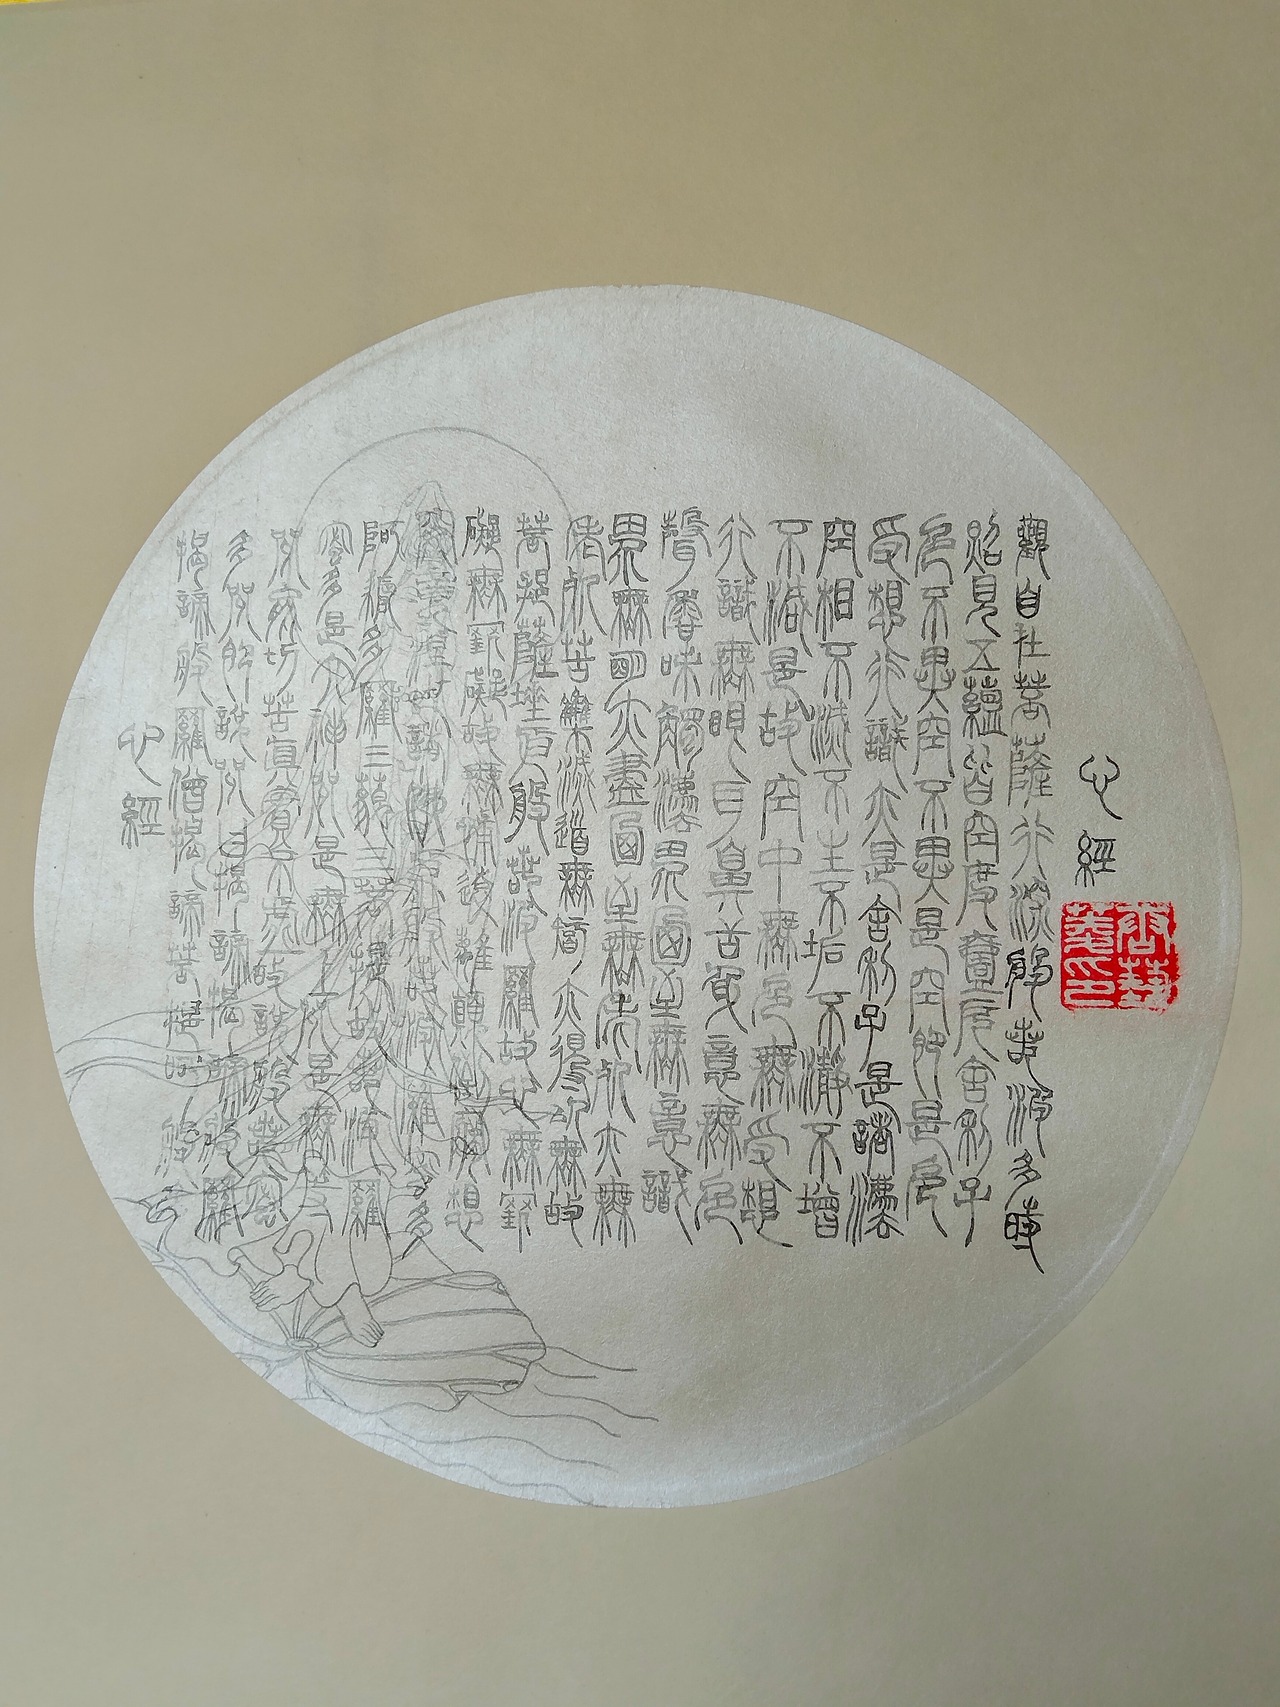 心經
觀自在菩薩行深般若波多時
照見五蘊皆空度厄舍利子
色不異空不異是空即是色
受想行識亦是舍利子是諸法
空相不滅不生不垢不瀞不增
不減是故空中無色無受想
行識無眼耳鼻舌身意無色
聲香味觸法界至無意識
界無明亦盡至無老死亦無
老死苦集滅道無智亦得以無故
菩提薩埵般若波羅故心無罣
礙無罣礙故無怖遠離顛倒夢想
究竟涅槃諸佛般若波羅蜜多
阿耨多羅三藐三菩提故若波羅
蜜多是大神咒是無上咒是無等
咒切苦真實不虛故說般若蜜
多咒即說咒曰揭諦揭諦般羅
揭諦般羅僧揭諦菩提
心經